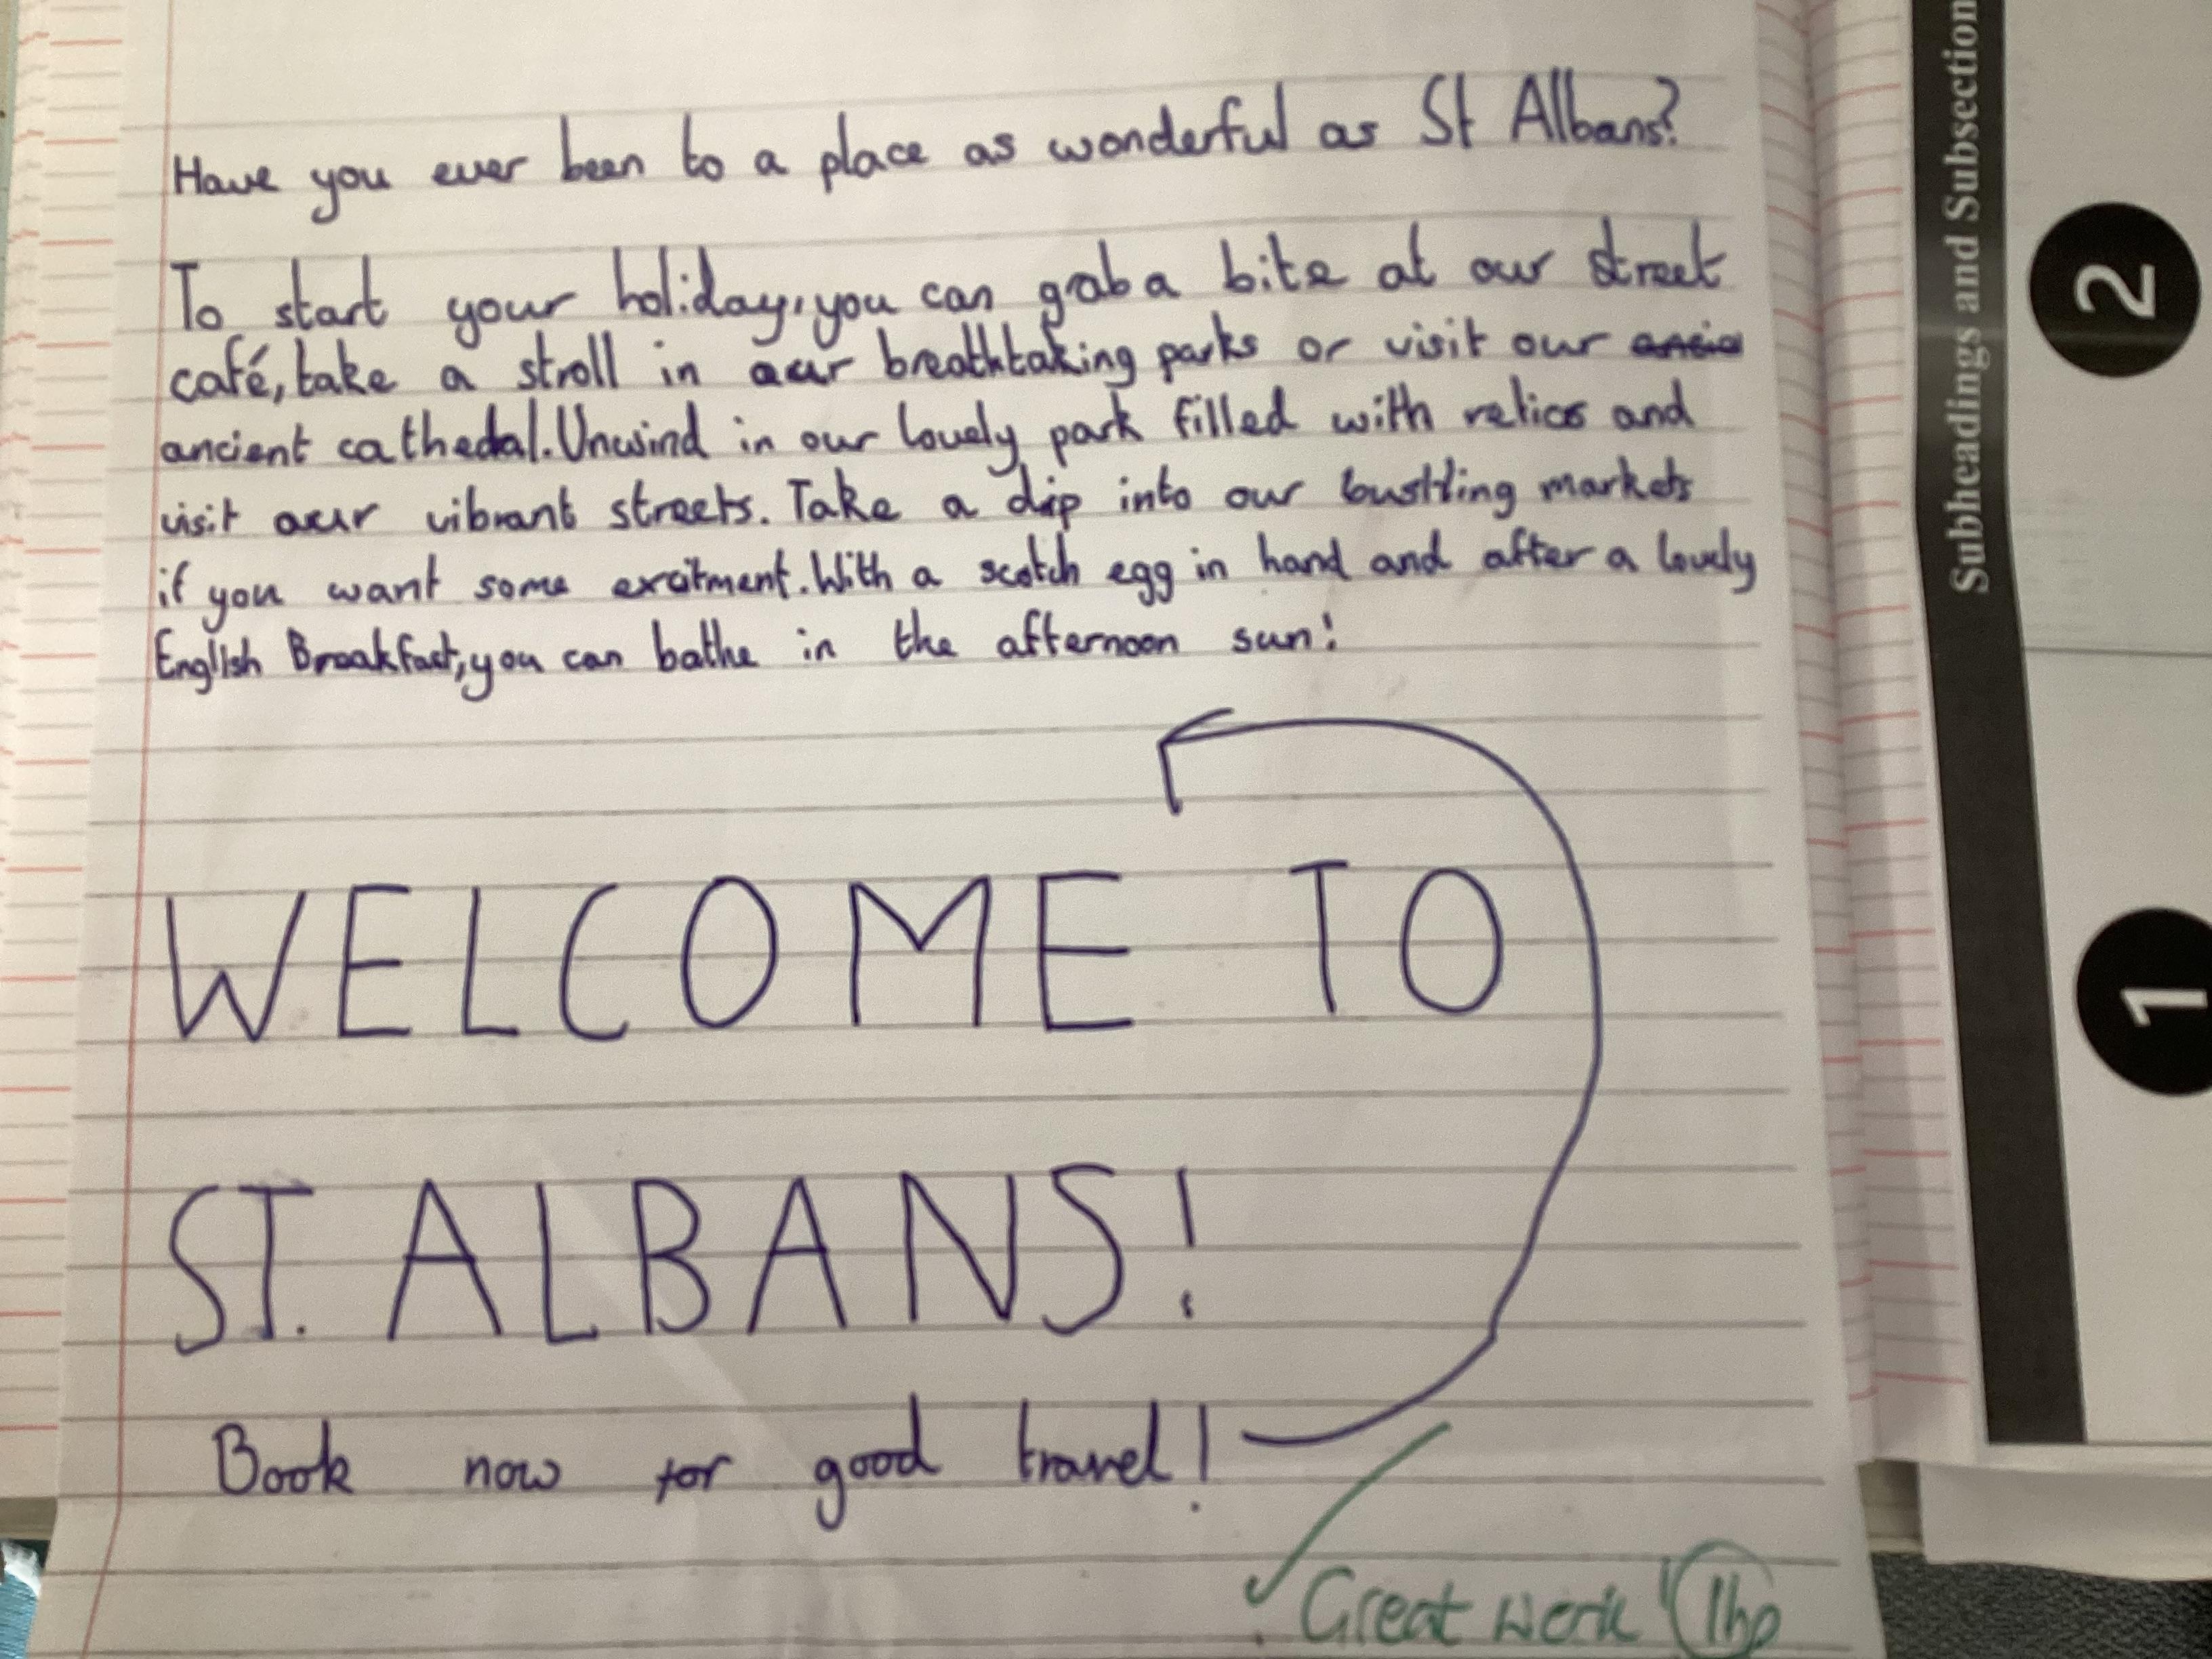 Have you ever been to a place as wonderful as St Albans?
To start your holiday, you can grab a bite at our street
café, take a stroll in our breathtaking parks or visit our
ancient cathedal. Unwind in our lovely park filled with relics and
visit our vibrant streets. Take a dip into our bustling markets
if you want some excitment. With a scotch egg in hand and after a lovely
English Breakfast, you can bathe in the afternoon sun!
WELCOME TO
ST. ALBANS!
Book now for good travel!
Great work! 1hp
Subheadings and Subsection
2
1